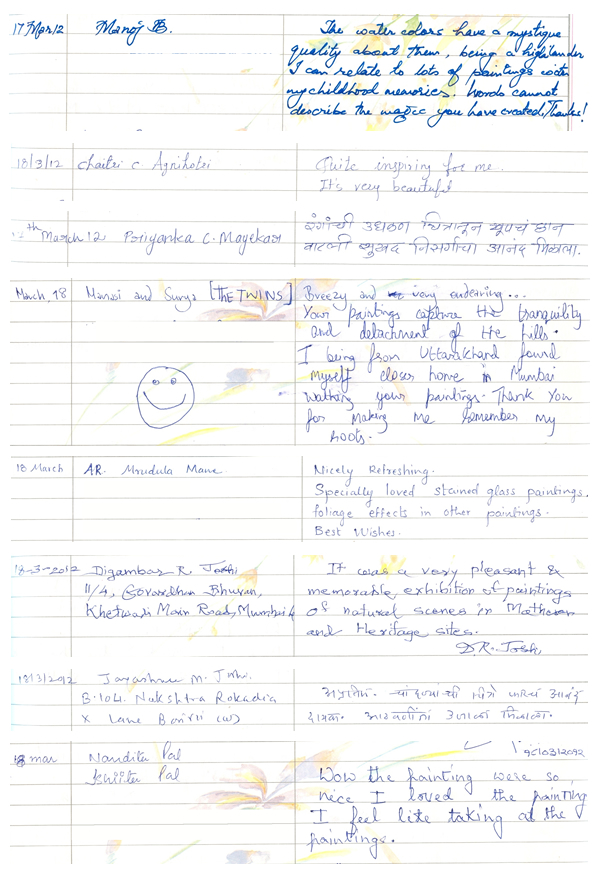 17 Mar 12 Manoj B. The water colors have a mystique
quality about them, being a highlander
I can relate to lots of paintings with
my childhood memories. Words cannot
describe the magic you have created. Thanks!
18/3/12 Chaitri C. Agnihotri Quite inspiring for me.
It's very beautiful
March 12 Priyanka C. Mayekar रंगांची उधळण चित्रातून खूपचं छान
वाटली सुखद निसर्गाचा आनंद मिळाला.
March, 18 Manasi and Surya [THE TWINS] Breezy and very endearing...
Your paintings capture the tranquility
and detachment of the hills.
I being from Uttarakhand found
myself closer home in Mumbai
walking your paintings. Thank You
for making me remember my
roots.
18 March AR. Mrudula Mane. Nicely Refreshing.
Specially loved stained glass paintings,
foliage effects in other paintings.
Best Wishes.
18-3-2012 Digambar R. Joshi It was a very pleasant &
11/4, Govardhan Bhuvan, memorable exhibition of paintings
Khetwadi Main Road, Mumbai 4 of natural scenes in Matheran
and Heritage sites.
D.R. Joshi
18/3/2012 M. अप्रतीम. चित्रे आनंद
B. 104. Nakshtra Rokadia दायक.
x Lane (W)
18 mar Nandita Pal
Pal Wow the painting were so
nice I loved the painting
I feel like taking all the
paintings.